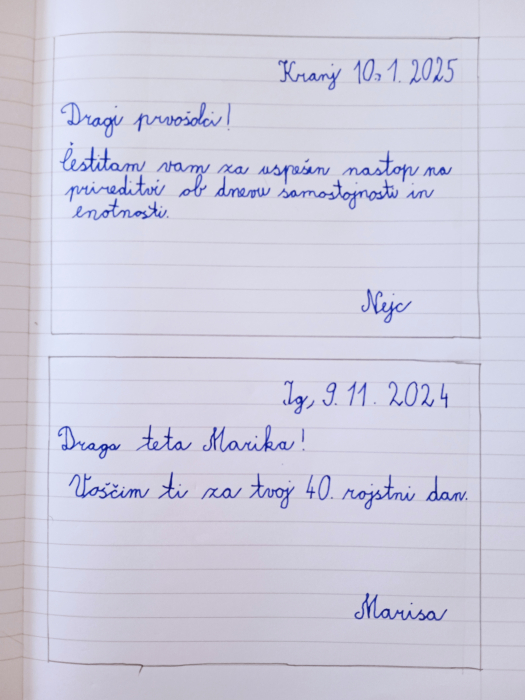 Kranj 10. 1. 2025
Dragi prvošolci!
Čestitam vam za uspešen nastop na
prireditvi ob dnevu samostojnosti in
enotnosti.
Nejc
Ig, 9. 11. 2024
Draga teta Marika!
Voščim ti za tvoj 40. rojstni dan.
Marisa